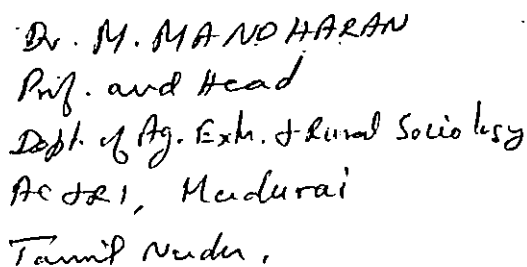 Dr. M. MANOHARAN
Prof. and Head
Dept. of Ag. Extn. & Rural Sociology
AC & RI, Madurai
Tamil Nadu,